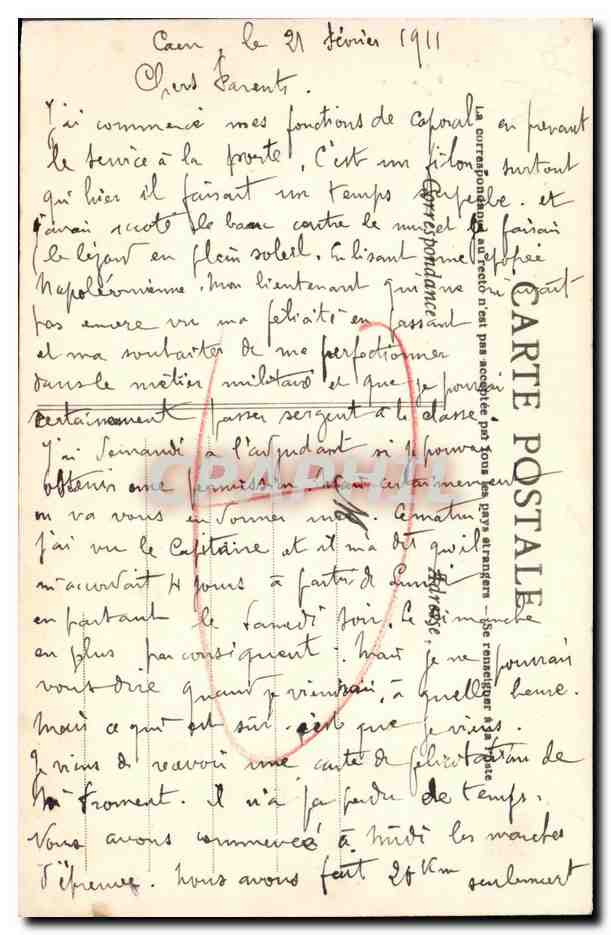 Caen, le 21 février 1911
Chers Parents.
J'ai commencé mes fonctions de caporal en prenant
le service à la porte, C'est un filon, surtout
qu'hier il faisait un temps superbe. et
j'avais le banc contre le mur et je faisais
le lézard en plein soleil. En lisant une épopée
Napoléonienne. Mon lieutenant qui ne m'avait
pas encore vu m'a félicité en passant
et m'a souhaiter de me perfectionner
dans le métier militaire et que je pourrai
certainement passer sergent à la classe
J'ai demandé à l'adjudant si je pouvais
obtenir une permission. certainement
on va vous en donner une. Ce matin
j'ai vu le Capitaine et il m'a dit qu'il
m'accordait 4 jours à partir de Lundi
en partant le Samedi soir. Le Dimanche
en plus par conséquent. Mais je ne pourrai
vous dire quand je viendrai, à quelle heure.
Mais ce qui est sûr c'est que je viens.
Je viens de recevoir une carte de félicitation de
Froment. Il n'a pas perdu de temps.
Nous avons commencé à midi les marches
d'épreuves. Nous avons fait 20 Km seulement
CARTE POSTALE
La correspondance au recto n'est pas acceptée par tous les pays étrangers — Se renseigner à la Poste
Correspondance
Adresse
CPAPHIL